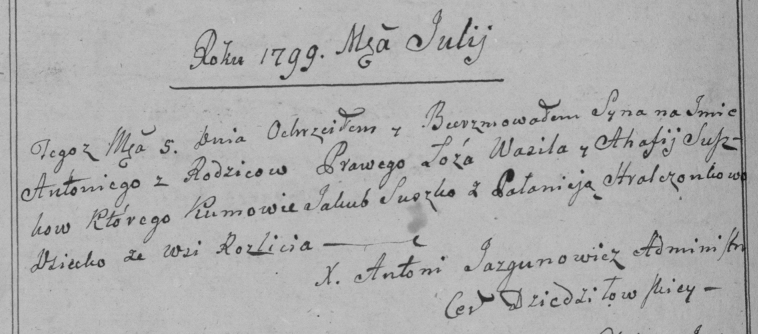 Roku 1799. Msca Julij
Tegoz Msca 5. Dnia Ochrzciłem y Bierzmowałem Syna na Imie
Antoniego z Rodzicow Prawego Łoża Wasila y Ahafij Susz-
kow Którego Kumowie Jakub Suszko z Pałanieją Hralczonkowo
Dziecko ze wsi Rozlicia
X. Antoni Jazgunowicz Administr
Cer Dziedziłowskiey